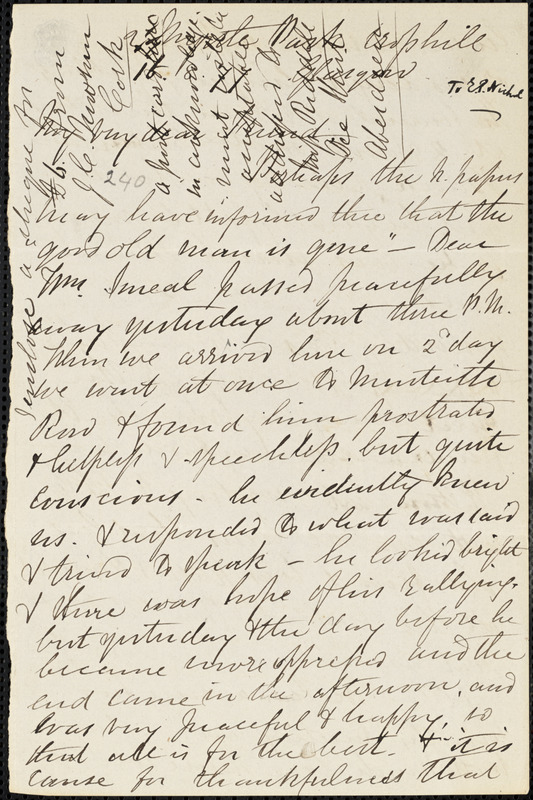 Park Crosshill
Glasgow
To E.P. Nichol
240
My very dear Friend
Perhaps the n. papers
may have informed thee that the
good old man is gone" - Dear
Wm. Smeal passed peacefully
away yesterday about three P.M.
When we arrived here on 2d day
we went at once to Monteith
Row & found him prostrated
& helpless & speechless, but quite
conscious - he evidently knew
us. & responded to what was said
& tried to speak - he looked bright
& there was hope of his rallying -
but yesterday & the day before he
became more oppressed and the
end came in the afternoon, and
was very peaceful & happy, so
that all is for the best. it is
cause for thankfulness that
I enclose a cheque for
£6. from
J C Newsham
Cork
a post card
in acknowledgment
must
acceptable
addressed to
Miss
The
Aberdeen